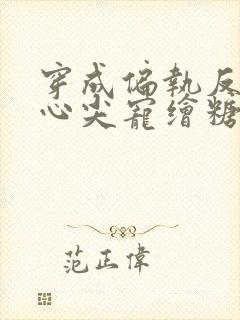 穿成偏執反
心尖寵繪糖
范正偉